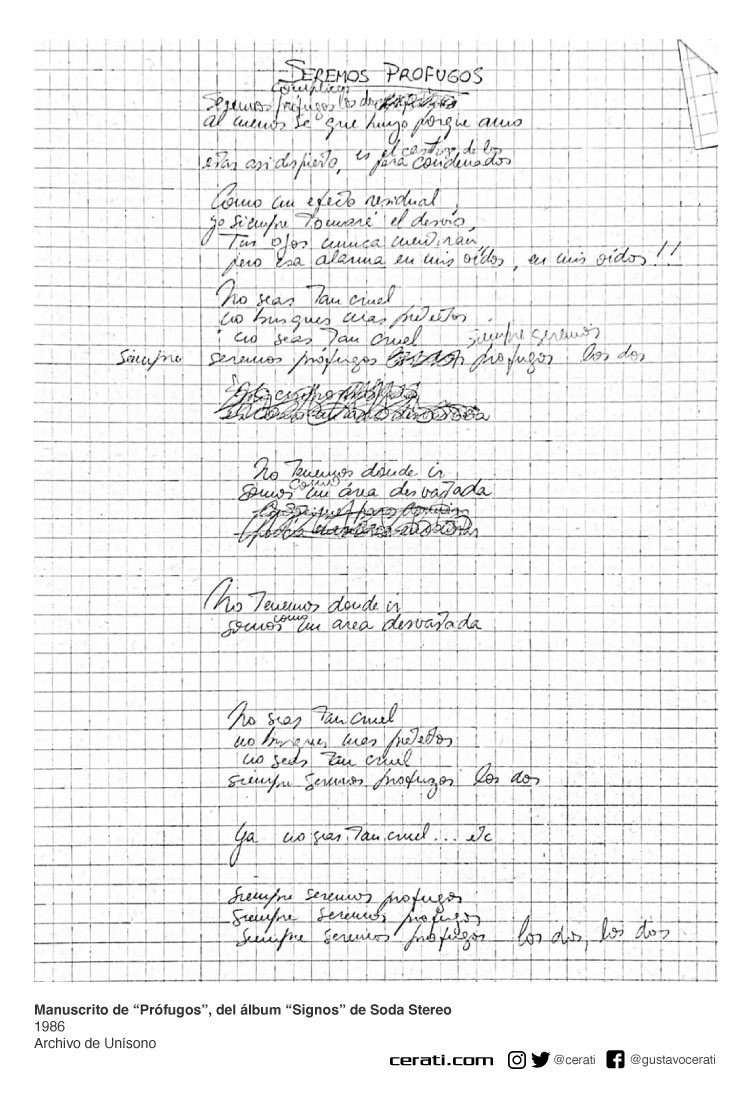 SEREMOS PROFUGOS
complices
Seremos prófugos los dos
al menos sé que huyo porque amo
el castigo de los
estar asi dispierto, es para condenados
Como un efecto residual
yo siempre Tomaré el desvío,
Tus ojos nunca mentirán,
pero esa alarma en mis oídos, en mis oídos!!
No seas Tan cruel
no busques mas pretextos
no seas Tan cruel siempre seremos
Siempre seremos prófugos prófugos los dos
No Tenemos donde ir
como
somos un área desvastada
No Tenemos donde ir
como
somos un area desvastada
No seas Tan cruel
no busques mas pretextos
no seas Tan cruel
siempre seremos profugos los dos
Ya no seas Tan cruel... etc
Siempre seremos profugos
Siempre seremos profugos
Siempre seremos prófugos los dos, los dos
Manuscrito de “Prófugos”, del álbum “Signos” de Soda Stereo
1986
Archivo de Unísono
cerati.com @cerati @gustavocerati